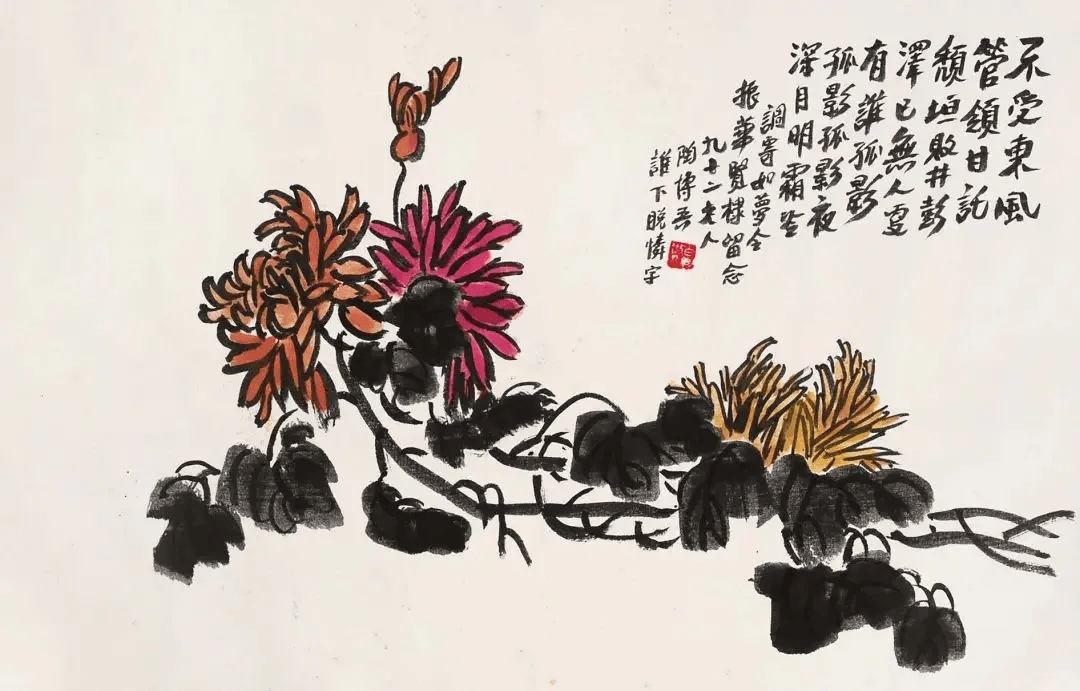 不受東風
管領甘託
頹垣敗井彭
澤已無人更
有誰孤影
孤影孤影夜
深月明霜冷
調寄如夢令
振華賢棣留念
九十二老人
陶博吾
誰下脫憐字